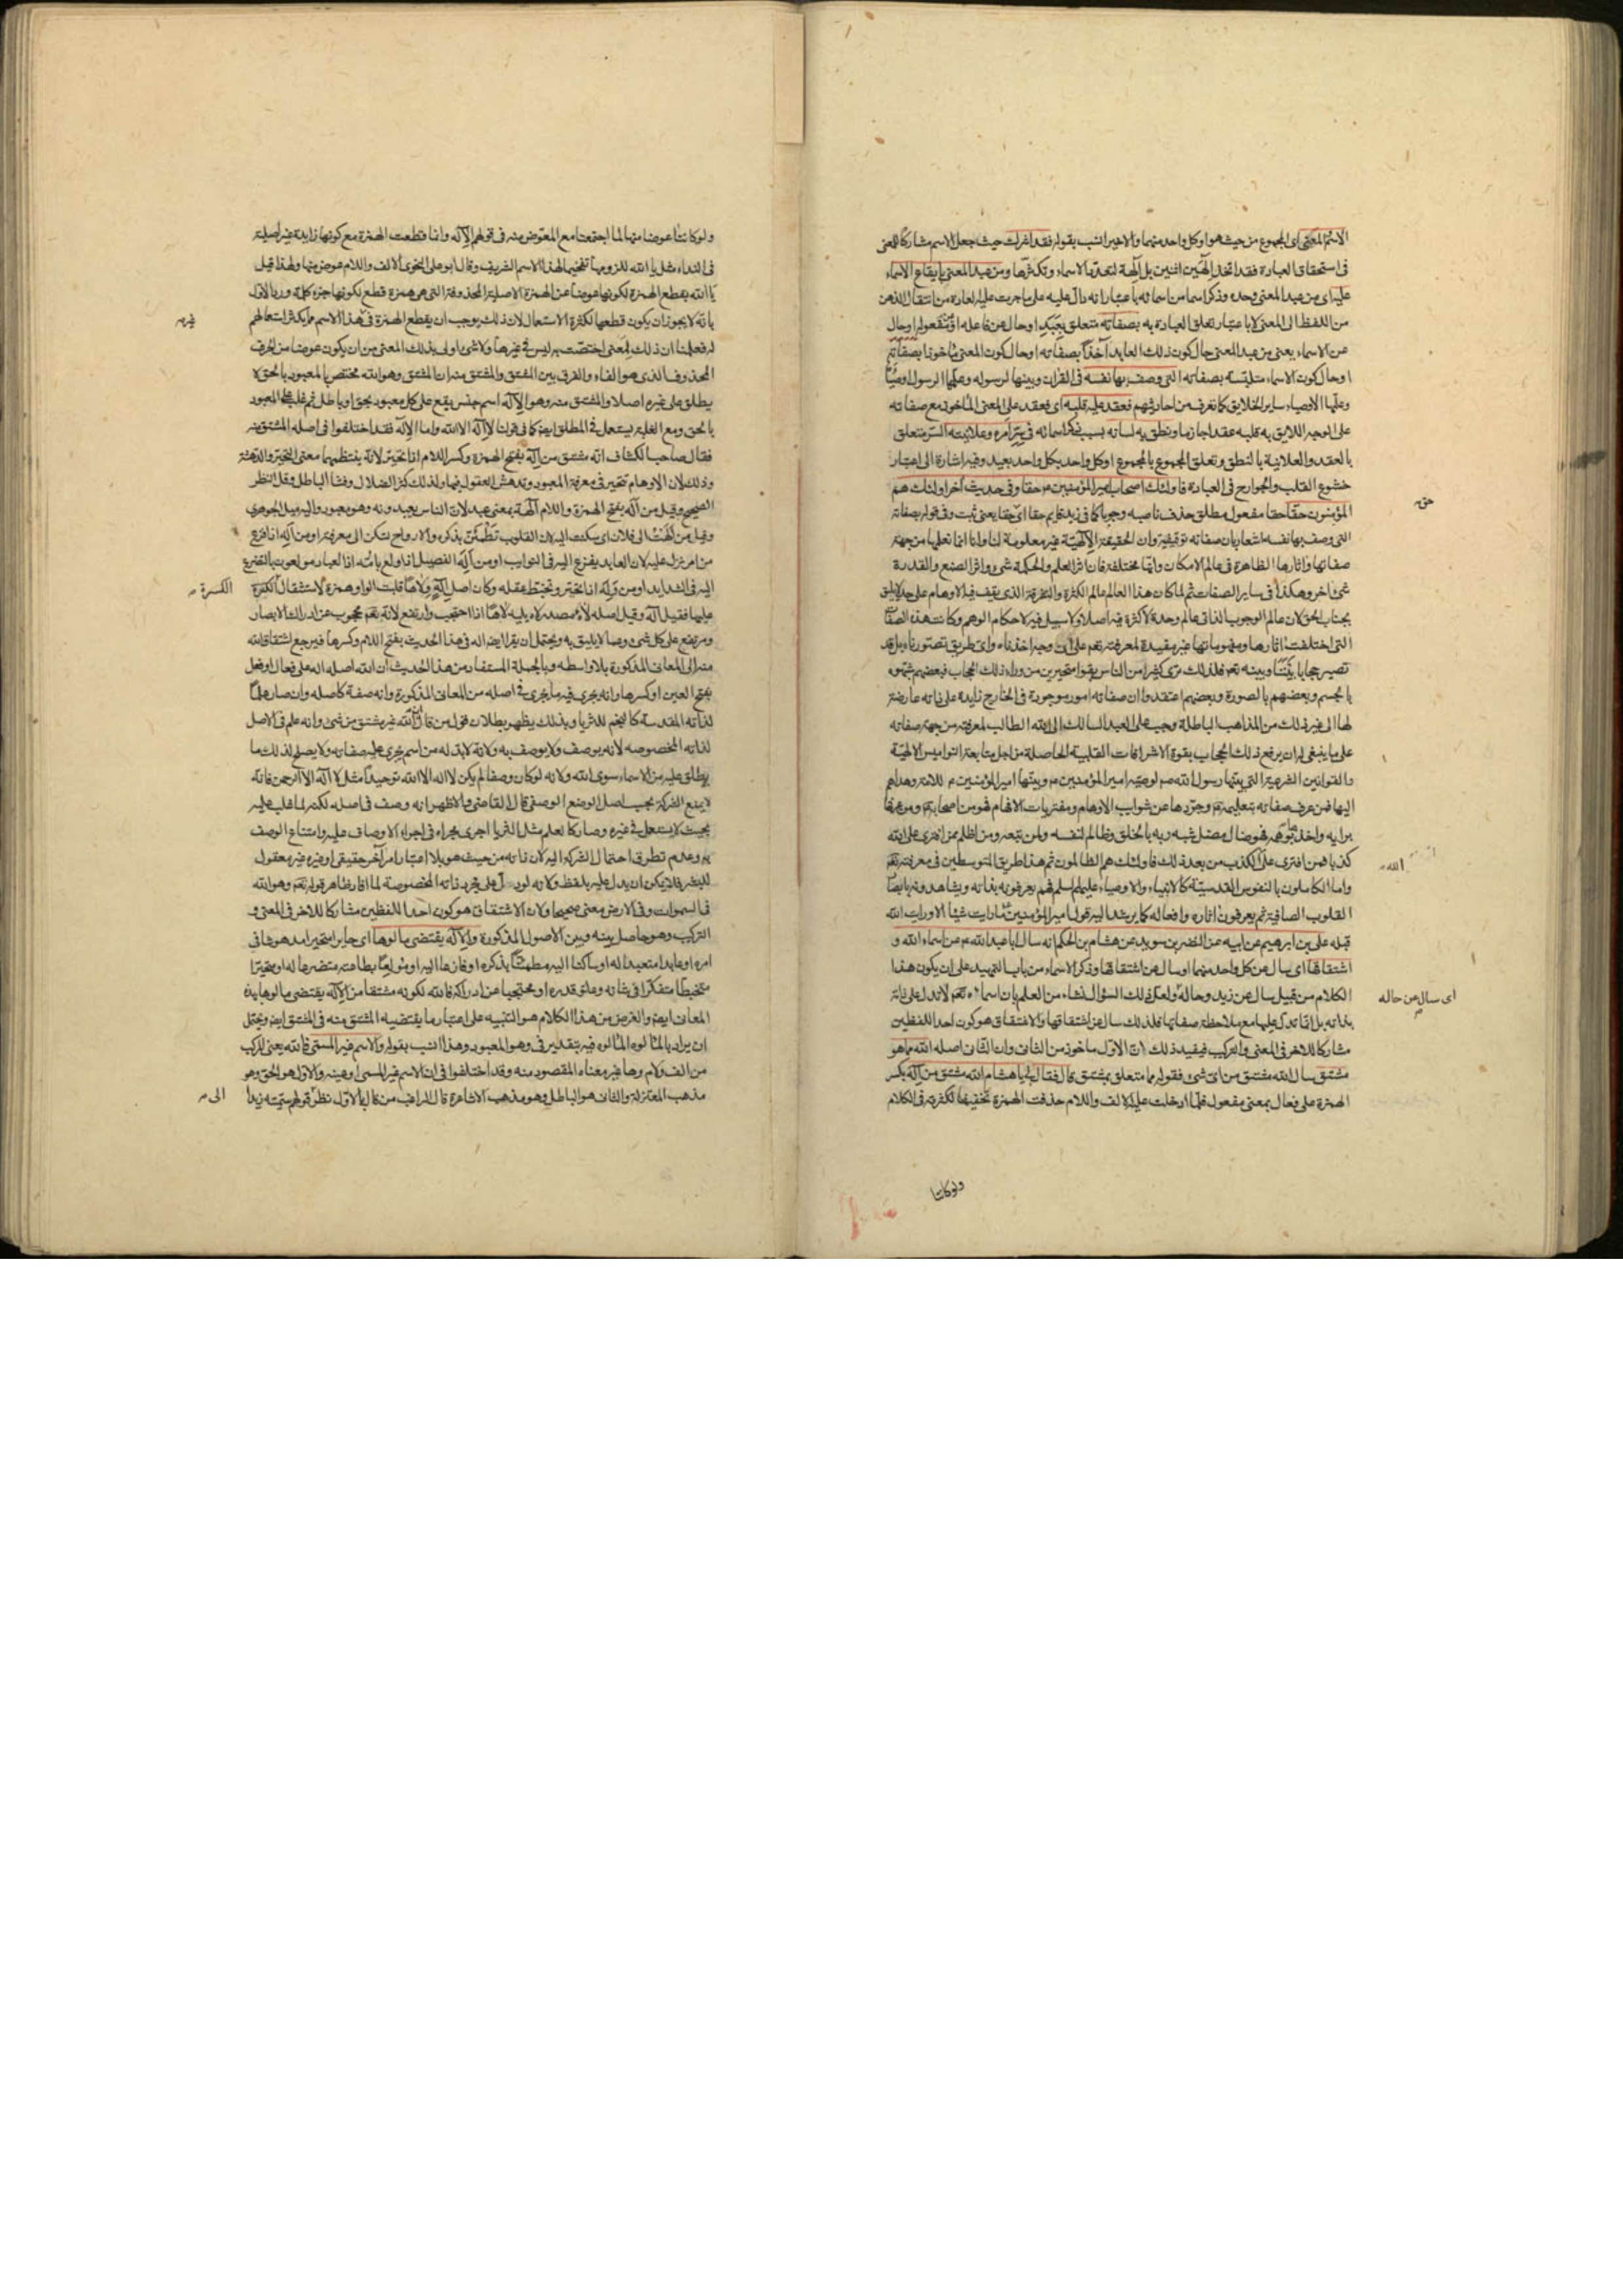 الاسم والمعنى اى المجموع من حيث هو او كل واحد منهما والاخير انسب بقوله فقد اشرك حيث جعل الاسم مشاركا للمعنى
فى استحقاق العبادة فقد اتخذ الهين اثنين بل آلهة لتعدد الاسماء وتكثرها ومن عبد المعنى بايقاع الاسماء
عليه اى من عبد المعنى وحده وذكر اسما من اسمائه باعتبار انه دال عليه على ما جرت عليه العادة من انتقال الذهن
من اللفظ الى المعنى لا باعتبار تعلق العبادة به بصفاته متعلق بعبد او حال عن فاعله او مفعوله او حال
عن الاسماء يعنى من عبد المعنى حال كون ذلك العابد آخذا بصفاته او حال كون المعنى ماخوذا بصفاته
او حال كون الاسماء متلبسة بصفاته التى وصف بها نفسه فى القران وبينها لرسوله وعلمها الرسول اوصياء
وعلمها الاوصياء ساير الخلايق كما نعرف من احاديثهم فعقد عليه قلبه اى فعقد على المعنى الماخوذ مع صفاته
على الوجه اللايق به قلبه عقدا جازما ونطق به لسانه بسبب ذكر اسمائه فى سر امره وعلانيته السر متعلق
بالعقد والعلانية بالنطق وتعلق المجموع بالمجموع او كل واحد بكل واحد بعيد وفيه اشارة الى اعتبار
خشوع القلب والجوارح فى العبادة فاولئك اصحاب امير المؤمنين ع حقا وفى حديث آخر اولئك هم
المؤمنون حقا حقا مفعول مطلق حذف ناصبه وجوبا كما فى زيد قايم حقا اى حق حقا يعنى ثبت وفى قوله بصفاته
التى وصف بها نفسه اشعار بان صفاته توقيفية وان الحقيقة الالهية غير معلومة لنا وانا انما نعلمها من جهة
صفاتها واثارها الظاهرة فى عالم الامكان وانها مختلفة فان اثر العلم والحكمة شىء واثر الصنع والقدرة
شىء اخر وهكذا فى ساير الصفات ثم لما كان هذا العالم عالم الكثرة والتفرقة الذى يقف فيه الاوهام على حد لا يليق
بجناب الحق لان عالم الوجوب الذاتى عالم وحدة لا كثرة فيه اصلا ولا سبيل فيه لاحكام الوهم وكانت هذه الصفات
التى اختلفت اثارها ومفهوماتها غير مفيدة لمعرفته تعم على اى وجه اخذناه واى طريق تصورناه بل قد
تصير حجابا بيننا وبينه تعم فلذلك ترى كثيرا من الناس بقوا متحيرين من وراء ذلك الحجاب فبعضهم شبهوه
بالجسم وبعضهم بالصورة وبعضهم اعتقدوا ان صفاته امور موجودة فى الخارج زايدة على ذاته عارضة
لها الى غير ذلك من المذاهب الباطلة وجب على العبد السالك الى الله الطالب لمعرفته من جهة صفاته
على ما ينبغى له ان يرفع ذلك الحجاب بقوة الاشراقات القلبية الحاصلة من اجل متابعة النواميس الالهية
والقوانين الشرعية التى بينها رسول الله صم لوصيه امير المؤمنين ع وبينها امير المؤمنين ع للامة وهداهم
اليها فمن عرف صفاته بتعليمهم وجردها عن شوايب الاوهام ومفتريات الافهام فهو من اصحابهم ومن عرفها
برايه واخذ بتوهمه فهو ضال مضل شبه ربه بالخلق وظالم لنفسه ولمن تبعه ومن اظلم ممن افترى على الله
كذبا فمن افترى على الكذب من بعد ذلك فاولئك هم الظالمون ثم هذا طريق المتوسطين فى معرفته تعم
واما الكاملون بالنفوس القدسية كالانبياء والاوصياء عليهم السلم فهم يعرفونه بذاته ويشاهدونه بابصار
القلوب الصافية ثم يعرفون اثاره وافعاله كما يرشد اليه قول امير المؤمنين ع ما رايت شيئا الا ورايت الله
قبله على بن ابرهيم عن ابيه عن النضر بن سويد عن هشام بن الحكم انه سال ابا عبد الله ع عن اسماء الله و
اشتقاقها اى سال عن كل واحد منهما او سال عن اشتقاقها وذكر الاسماء من باب التمهيد على ان يكون هذا
الكلام من قبيل سال عن زيد وحاله ولعل ذلك السؤال نشاء من العلم بان اسماءه تعم لا تدل على ذاته
بذاته بل انما تدل عليها مع ملاحظة صفاتها فلذلك سال عن اشتقاقها والاشتقاق هو كون احد اللفظين
مشاركا للاخر فى المعنى والتركيب فيفيد ذلك ان الاول ماخوذ من الثانى وان الثانى اصله الله مما هو
مشتق سال الله مشتق من اى شىء فقوله مما متعلق بمشتق قال فقال لى يا هشام الله مشتق من اله بكسر
الهمزة على فعال بمعنى مفعول فلما ادخلت عليه الالف واللام حذفت الهمزة تخفيفا لكثرته فى الكلام
ولو كانتا
حق
الله
اى سال عن حاله
ولو كانتا عوضا منها لما اجتمعتا مع المعوض منه فى قولهم الاله وانما قطعت الهمزة مع كونها زايدة غير اصلية
فى النداء مثل يا الله للزومها تفخيما لهذا الاسم الشريف وقال ابو على النحوى الالف واللام عوض منها ولهذا قيل
يا الله بقطع الهمزة لكونها عوضا عن الهمزة الاصلية المحذوفة التى هى همزة قطع لكونها جزء كلمة ورد الاول
بانه لا يجوز ان يكون قطعها لكثرة الاستعمال لان ذلك يوجب ان يقطع الهمزة فى هذا الاسم مما يكثر استعمالهم
له فعلمنا ان ذلك لمعنى اختصت به ليس فى غيرها ولا شىء اولى بذلك المعنى من ان يكون عوضا من الحرف
المحذوف الذى هو الفاء والفرق بين المشتق والمشتق منه ان المشتق وهو الله مختص بالمعبود بالحق لا
يطلق على غيره اصلا والمشتق منه وهو الاله اسم جنس يقع على كل معبود بحق او باطل ثم غلب على المعبود
بالحق ومع الغلبة يستعمل فى المطلق ايضا كما فى قولنا لا اله الا الله واما الاله فقد اختلفوا فى اصله المشتق منه
فقال صاحب الكشاف انه مشتق من اله بفتح الهمزة وكسر اللام اذا تحير لانه ينتظمهما معنى التحير والدهشة
وذلك لان الاوهام تتحير فى معرفة المعبود وتدهش العقول فيها ولذلك كثر الضلال وفشا الباطل وقل النظر
الصحيح وقيل من اله بفتح الهمزة واللام آلهة بمعنى عبد لان الناس يعبدونه وهو معبود واليه ميل الجوهرى
وقيل من الهت الى فلان اى سكنت اليه لان القلوب تطمئن بذكره والارواح تسكن الى معرفته او من اله اذا فزع
من امر نزل عليه لان العابد يفزع اليه فى النوايب او من اله الفصيل اذا ولع بامه اذ العباد مولعون بالتضرع
اليه فى الشدايد او من وله اذا تحير وتخبط عقله وكان اصل اله ولاها قلبت الواو همزة لاستثقال الكسرة
عليها فقيل اله وقيل اصله لاه مصدر لاه يليه لاها اذا احتجب وارتفع لانه تعم محجوب عن ادراك الابصار
ومرتفع على كل شىء وعما لا يليق به ويحتمل ان يقرا ايضا اله فى هذا الحديث بفتح اللام وكسرها فيرجع اشتقاق الله
منه الى المعانى المذكورة بلا واسطه وبالجملة المستفاد من هذا الحديث ان الله اصله اله على فعال او فعل
بفتح العين او كسرها وانه يجرى فيه ما يجرى فى اصله من المعانى المذكورة وانه صفة كاصله وان صار علما
لذاته المقدسة كالنجم للثريا وبذلك يظهر بطلان قول من قال ان الله غير مشتق من شىء وانه علم فى الاصل
لذاته المخصوصه لانه يوصف ولا يوصف به ولانه لابد له من اسم يجرى عليه صفاته ولا يصلح لذلك ما
يطلق عليه من الاسماء سوى الله ولانه لو كان وصفا لم يكن لا اله الا الله توحيدا مثل لا اله الا الرحمن فانه
لا يمنع الشركة بحسب اصل الوضع الوصفى قال القاضى والاظهر انه وصف فى اصله لكنه لما غلب عليه
بحيث لا يستعمل فى غيره وصار كالعلم مثل الثريا اجرى مجراه فى اجراء الاوصاف عليه وامتناع الوصف
به وعدم تطرق احتمال الشركة اليه لان ذاته من حيث هو بلا اعتبار امر آخر حقيقى او غيره غير معقول
للبشر فلا يمكن ان يدل عليه بلفظ ولانه لو دل على مجرد ذاته المخصوصة لما افاد ظاهر قوله تعم وهو الله
فى السموات وفى الارض معنى صحيحا ولان الاشتقاق هو كون احد اللفظين مشاركا للاخر فى المعنى و
التركيب وهو حاصل بينه وبين الاصول المذكورة والاله يقتضى مالوها اى حايرا متحيرا مدهوشا فى
امره او عابدا متعبدا له او ساكنا اليه مطمئنا بذكره او فازعا اليه او مولعا بطاعته متضرعا له او متحيرا
متخبطا متفكرا فى شانه وعلو قدره او محتجبا عن ادراكه فالله لكونه مشتقا من الاله يقتضى مالوها بهذه
المعانى ايضا والغرض من هذا الكلام هو التنبيه على اعتبار ما يقتضيه المشتق منه فى المشتق ايضا ويحتمل
ان يراد بالمالوه المالوه فيه بتقدير فى وهو المعبود وهذا انسب بقوله والاسم غير المسمى فالله يعنى المركب
من الف ولام وها غير معناه المقصود منه وقد اختلفوا فى ان الاسم غير المسمى او عينه والاول هو الحق وهو
مذهب المعتزلة والثانى هو الباطل وهو مذهب الاشاعرة قال الراغب من قال بالاول نظر قولهم سميته زيدا
غيره
الكسرة
الى